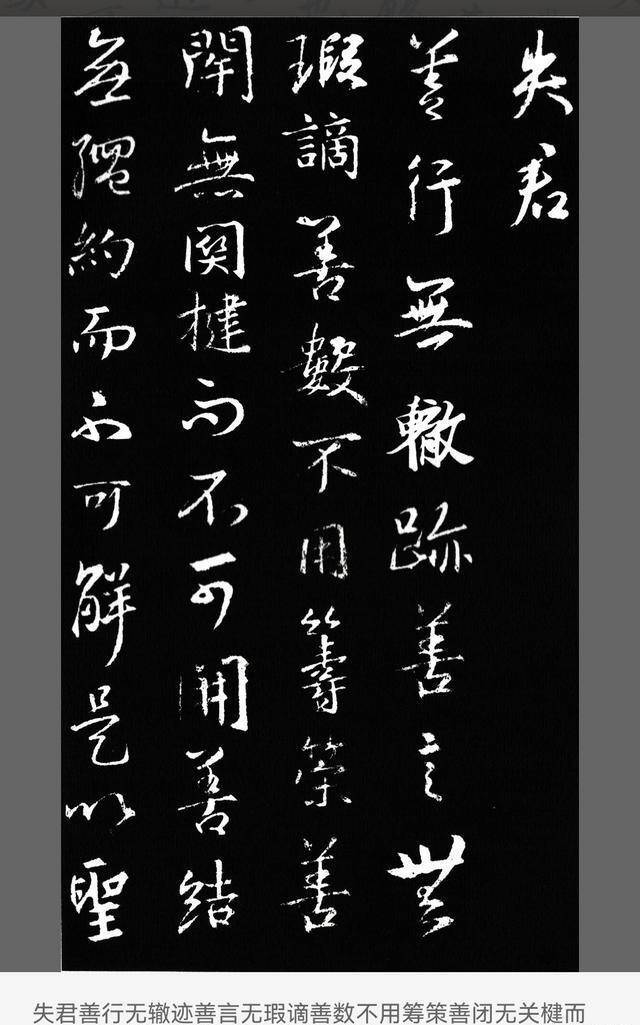 失君
善行無轍跡善言無
瑕謫善數不用籌策善
閇無関揵而不可開善結
無繩約而不可解是以聖
失君善行无辙迹善言无瑕谪善数不用筹策善闭无关楗而